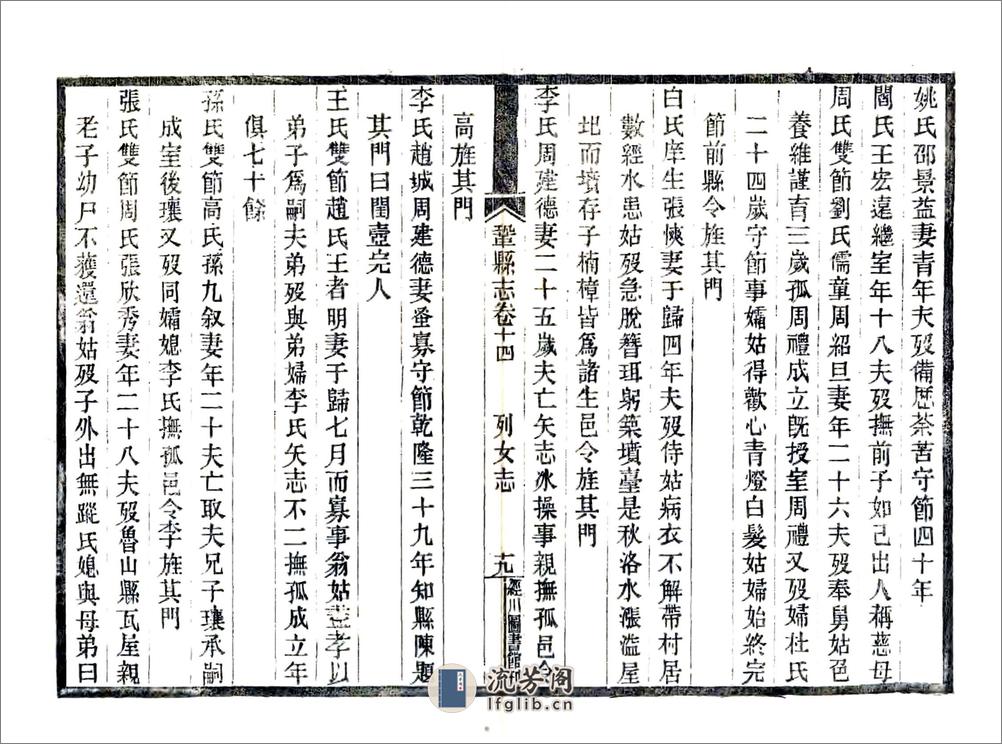 姚氏邵景益妻青年夫歿備歷荼苦守節四十年
閻氏王宏遠繼室年十八夫歿撫前子如己出人稱慈母
周氏雙節劉氏儒童周紹旦妻年二十六夫歿奉舅姑色
養維謹育三歲孤周禮成立既授室周禮又歿婦杜氏
二十四歲守節事孀姑得歡心青燈白髮姑婦始終完
節前縣令旌其門
白氏庠生張悏妻于歸四年夫歿侍姑病衣不解帶村居
數經水患姑歿急脫簪珥躬築墳臺是秋洛水漲溢屋
圯而墳存子楠樟皆爲諸生邑令旌其門
李氏周建德妻二十五歲夫亡矢志氷操事親撫孤邑令
鞏縣志卷十四 列女志 十九 經川圖書館刊
高旌其門
李氏趙城周建德妻蚤寡守節乾隆三十九年知縣陳題
其門曰閨壼完人
王氏雙節趙氏王者明妻于歸七月而寡事翁姑盡孝以
弟子爲嗣夫弟歿與弟婦李氏矢志不二撫孤成立年
俱七十餘
孫氏雙節高氏孫九叙妻年二十夫亡取夫兄子瓖承嗣
成室後瓖又歿同孀媳李氏撫孤邑令李旌其門
張氏雙節周氏張欣秀妻年二十八夫歿魯山縣瓦屋親
老子幼尸不獲還翁姑歿子外出無蹤氏媳與母弟曰
流芳阁
lfglib.cn